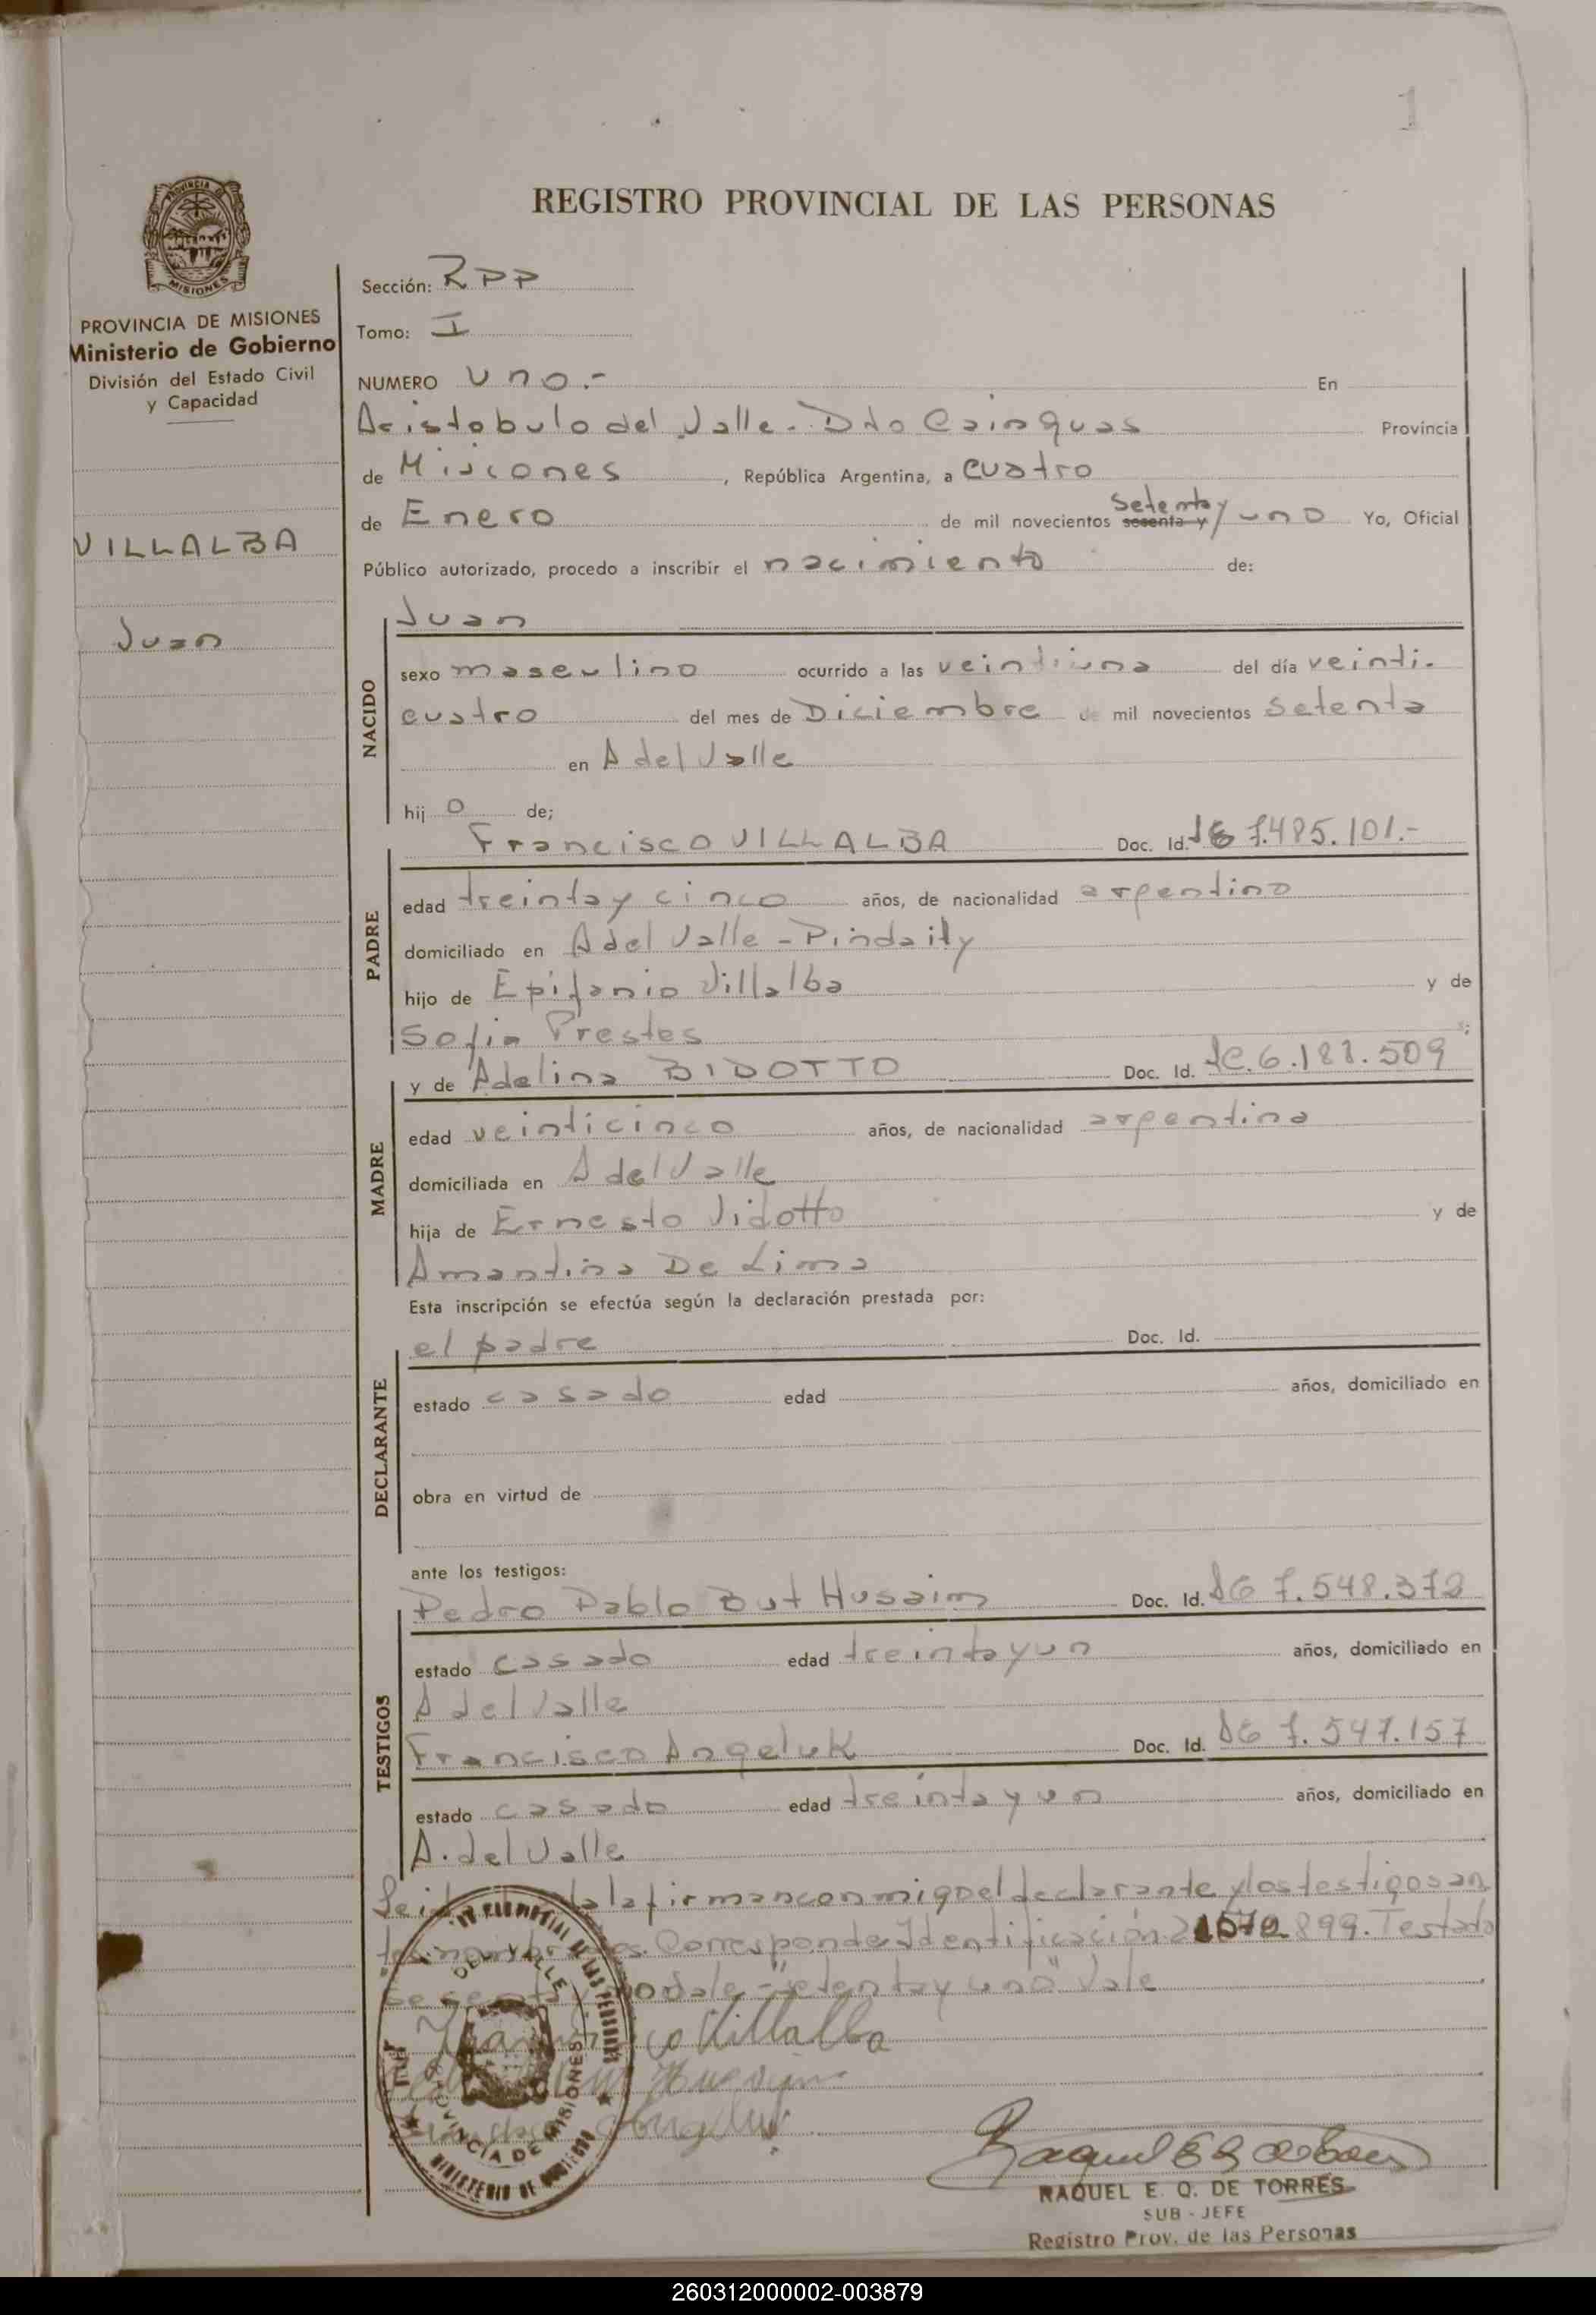 1
REGISTRO PROVINCIAL DE LAS PERSONAS
PROVINCIA DE MISIONES
Ministerio de Gobierno
División del Estado Civil
y Capacidad
VILLALBA
Juan
Sección: RPP
Tomo: I
NUMERO uno.- En
Aristobulo del Valle - Dto Cainguas Provincia
de Misiones, República Argentina, a cuatro
de Enero de mil novecientos sesenta y setenta y uno Yo, Oficial
Público autorizado, procedo a inscribir el nacimiento de:
NACIDO
Juan
sexo masculino ocurrido a las veintiuna del día veinti-
cuatro del mes de Diciembre de mil novecientos setenta
en A del Valle
hijo de;
PADRE
Francisco VILLALBA Doc. Id. 7.485.101.-
edad treinta y cinco años, de nacionalidad argentino
domiciliado en A del Valle - Pindaity
hijo de Epifanio Villalba y de
Sofia Prestes
MADRE
y de Adelina BIDOTTO Doc. Id. 6.188.509
edad veinticinco años, de nacionalidad argentina
domiciliada en A del Valle
hija de Ernesto Vidotto y de
Amantina De Lima
Esta inscripción se efectúa según la declaración prestada por:
DECLARANTE
el padre Doc. Id.
estado casado edad años, domiciliado en
obra en virtud de
ante los testigos:
TESTIGOS
Pedro Pablo But Husaim Doc. Id. 7.548.372
estado casado edad treinta y un años, domiciliado en
A del Valle
Francisco Angeluk Doc. Id. 7.547.157
estado casado edad treinta y un años, domiciliado en
A. del Valle
la firman conmigo el declarante y los testigos an
Corresponde Identificación 899. Testado
no vale - "setenta y uno" Vale
Villalba
Husaim
DEL VALLE
PROVINCIA DE MISIONES
MINISTERIO DE GOBIERNO
RAQUEL E. Q. DE TORRES
SUB - JEFE
Registro Prov. de las Personas
260312000002-003879